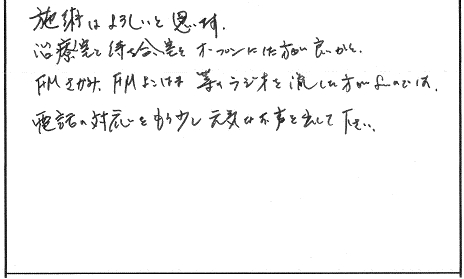 施術はよろしいと思います。
治療室と待ち合い室をオープンにした方が良いかと。
FMさがみ、FMよこはま等のラジオを流した方がよいのでは。
電話の対応をもう少し元気な声を出して下さい。